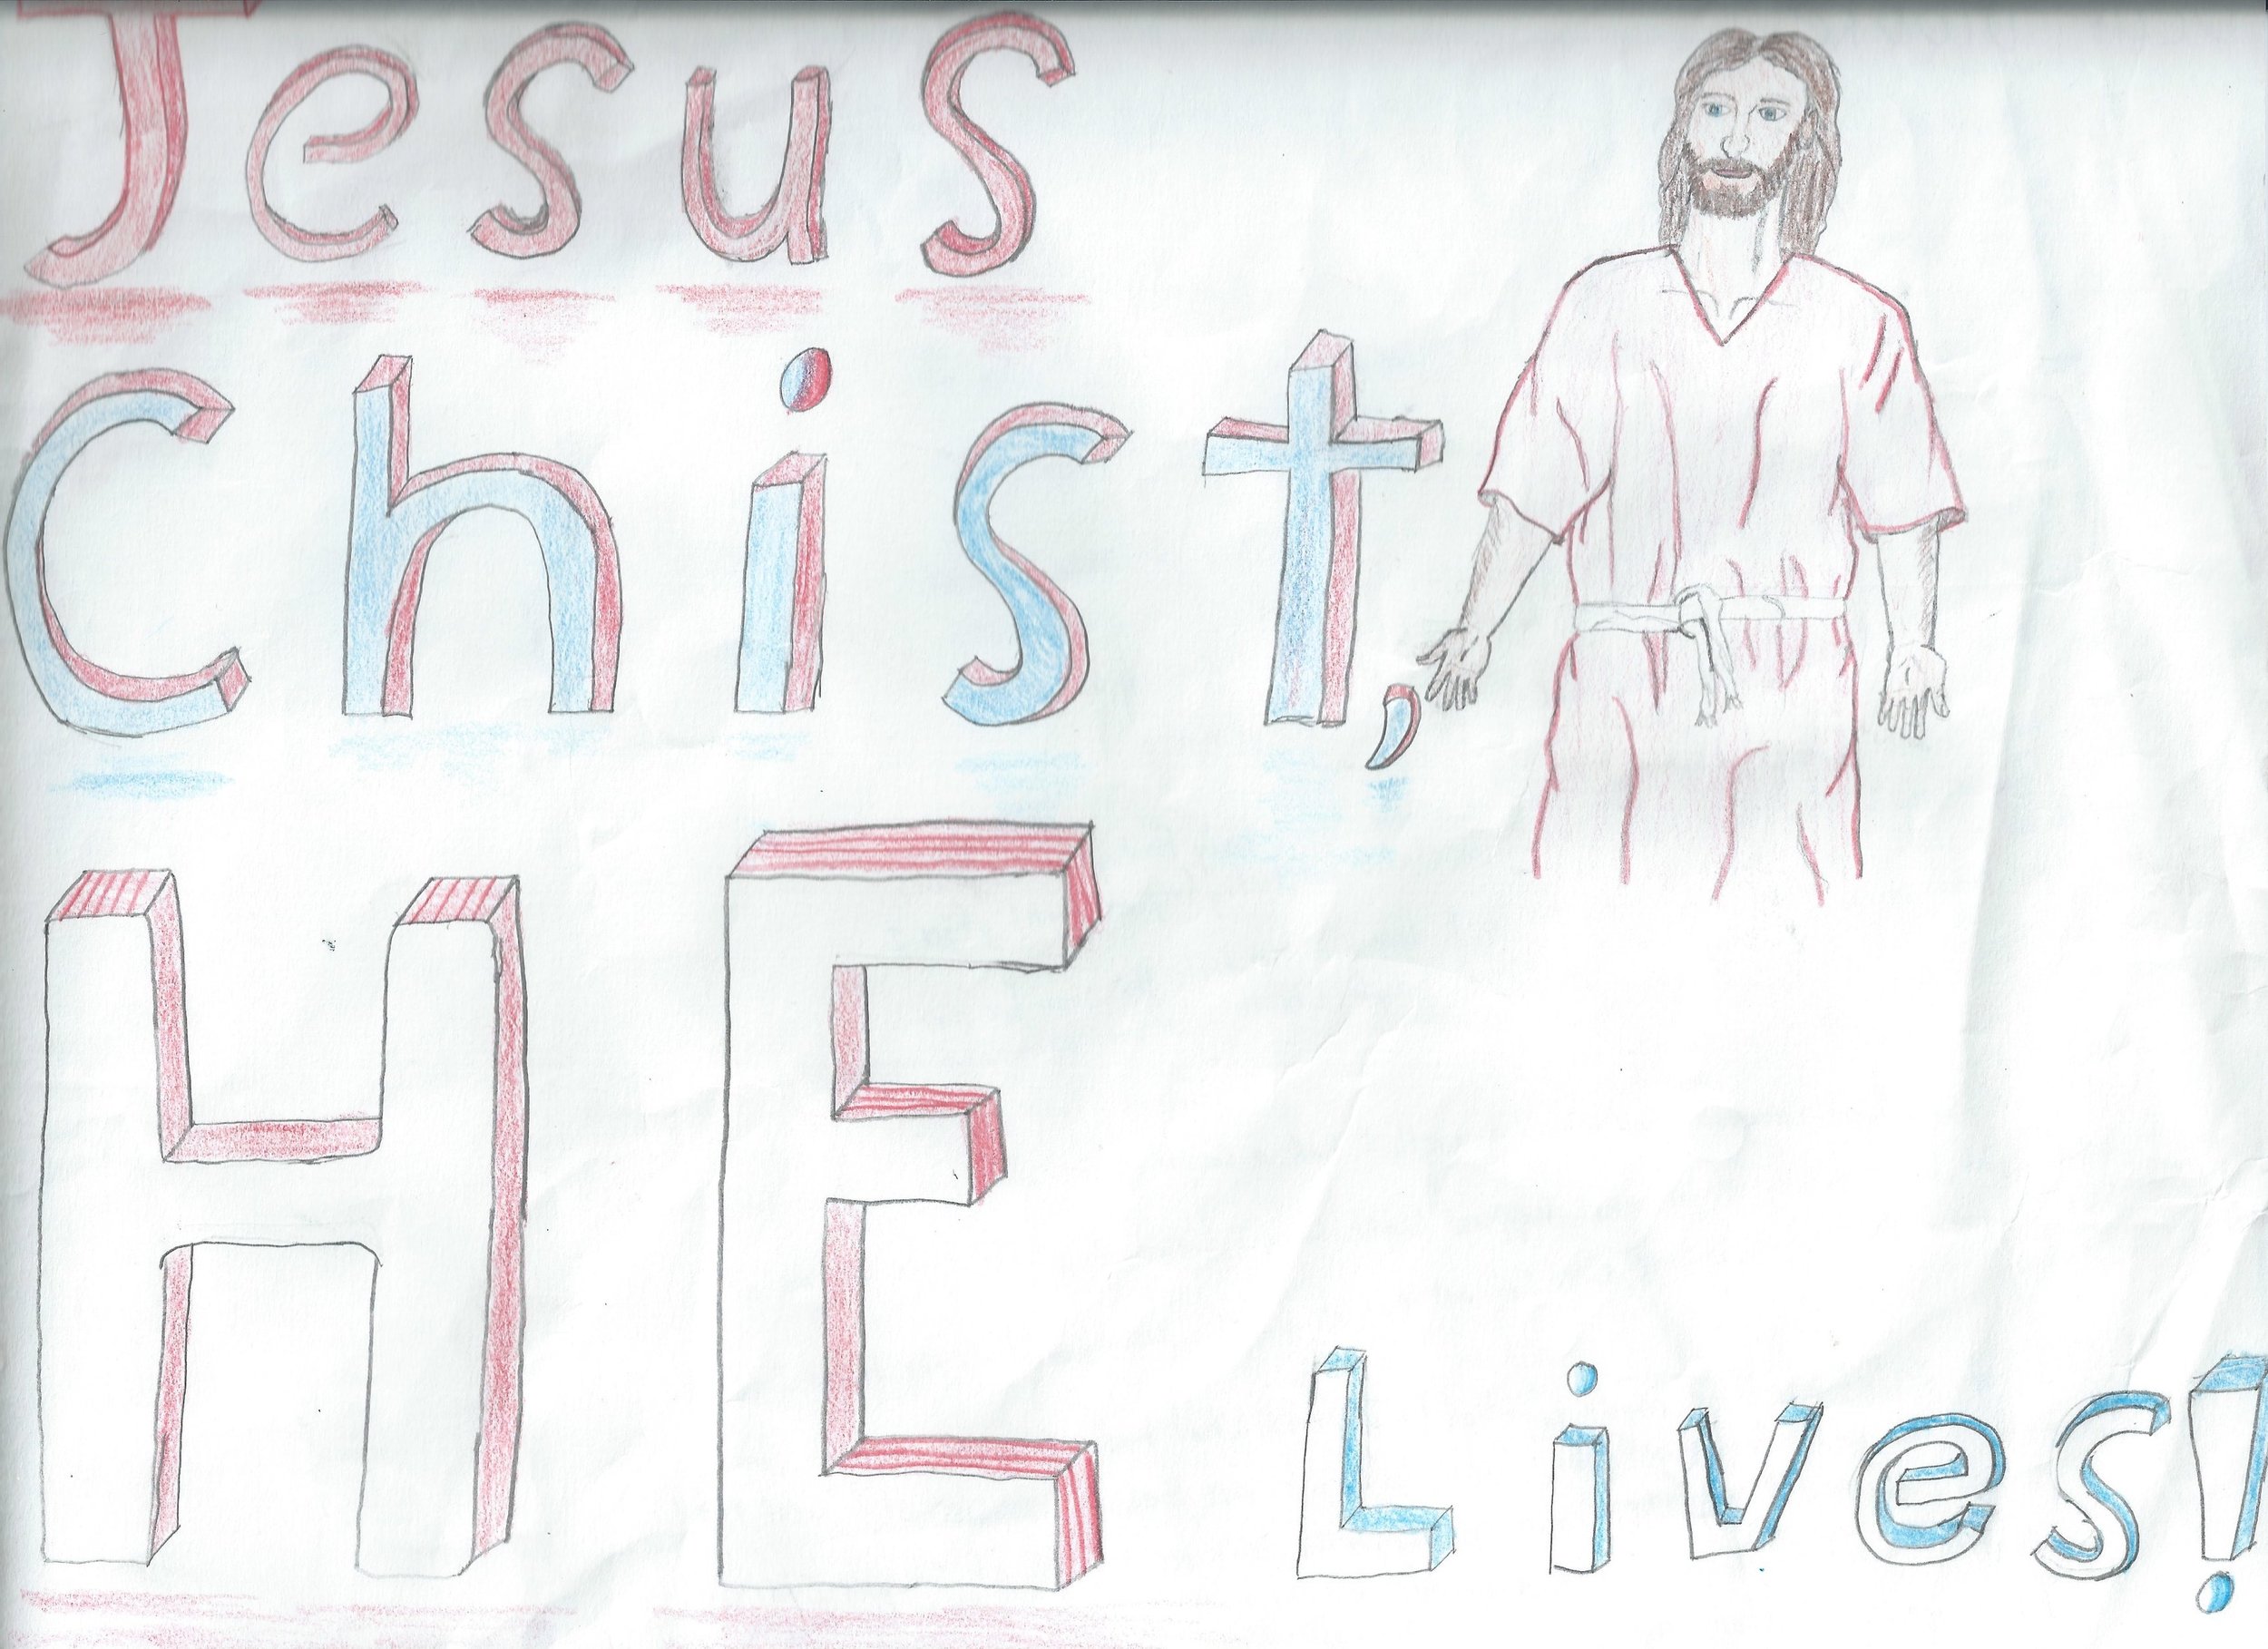 Jesus
Chist,
HE
Lives!